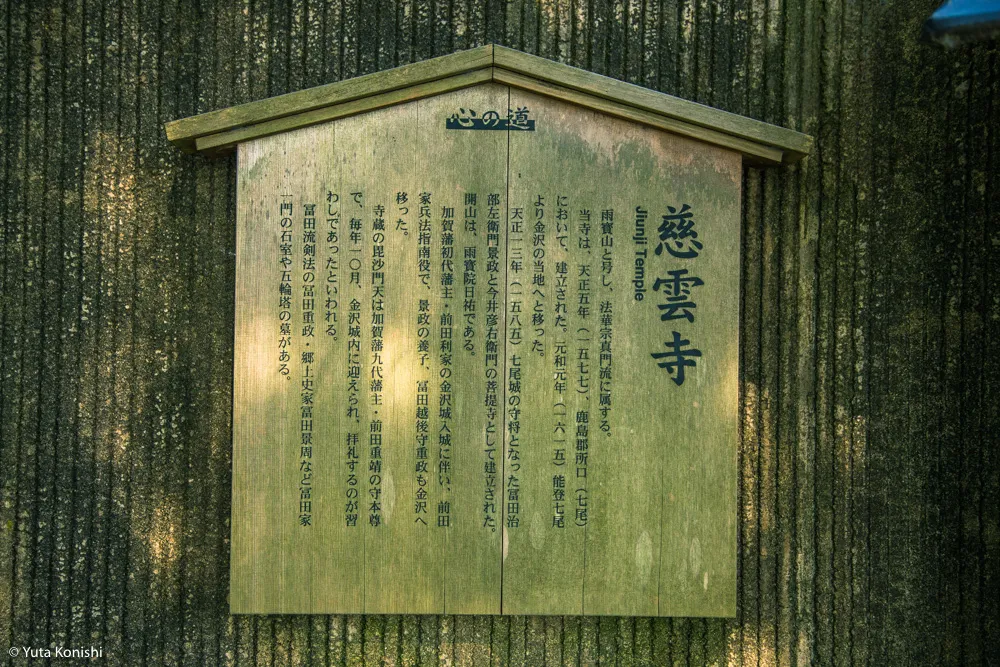 心の道
慈雲寺
Jiunji Temple
雨寶山と号し、法華宗真門流に属する。
当寺は、天正五年（一五七七）、鹿島郡所口（七尾）
において、建立された。元和元年（一六一五）能登七尾
より金沢の当地へと移った。
天正一三年（一五八五）七尾城の守将となった冨田治
部左衛門景政と今井彦右衛門の菩提寺として建立された。
開山は、雨寶院日祐である。
加賀藩初代藩主・前田利家の金沢城入城に伴い、前田
家兵法指南役で、景政の養子、冨田越後守重政も金沢へ
移った。
寺蔵の毘沙門天は加賀藩九代藩主・前田重靖の守本尊
で、毎年一〇月、金沢城内に迎えられ、拝礼するのが習
わしであったといわれる。
冨田流剣法の冨田重政・郷土史家冨田景周など冨田家
一門の石室や五輪塔の墓がある。
© Yuta Konishi